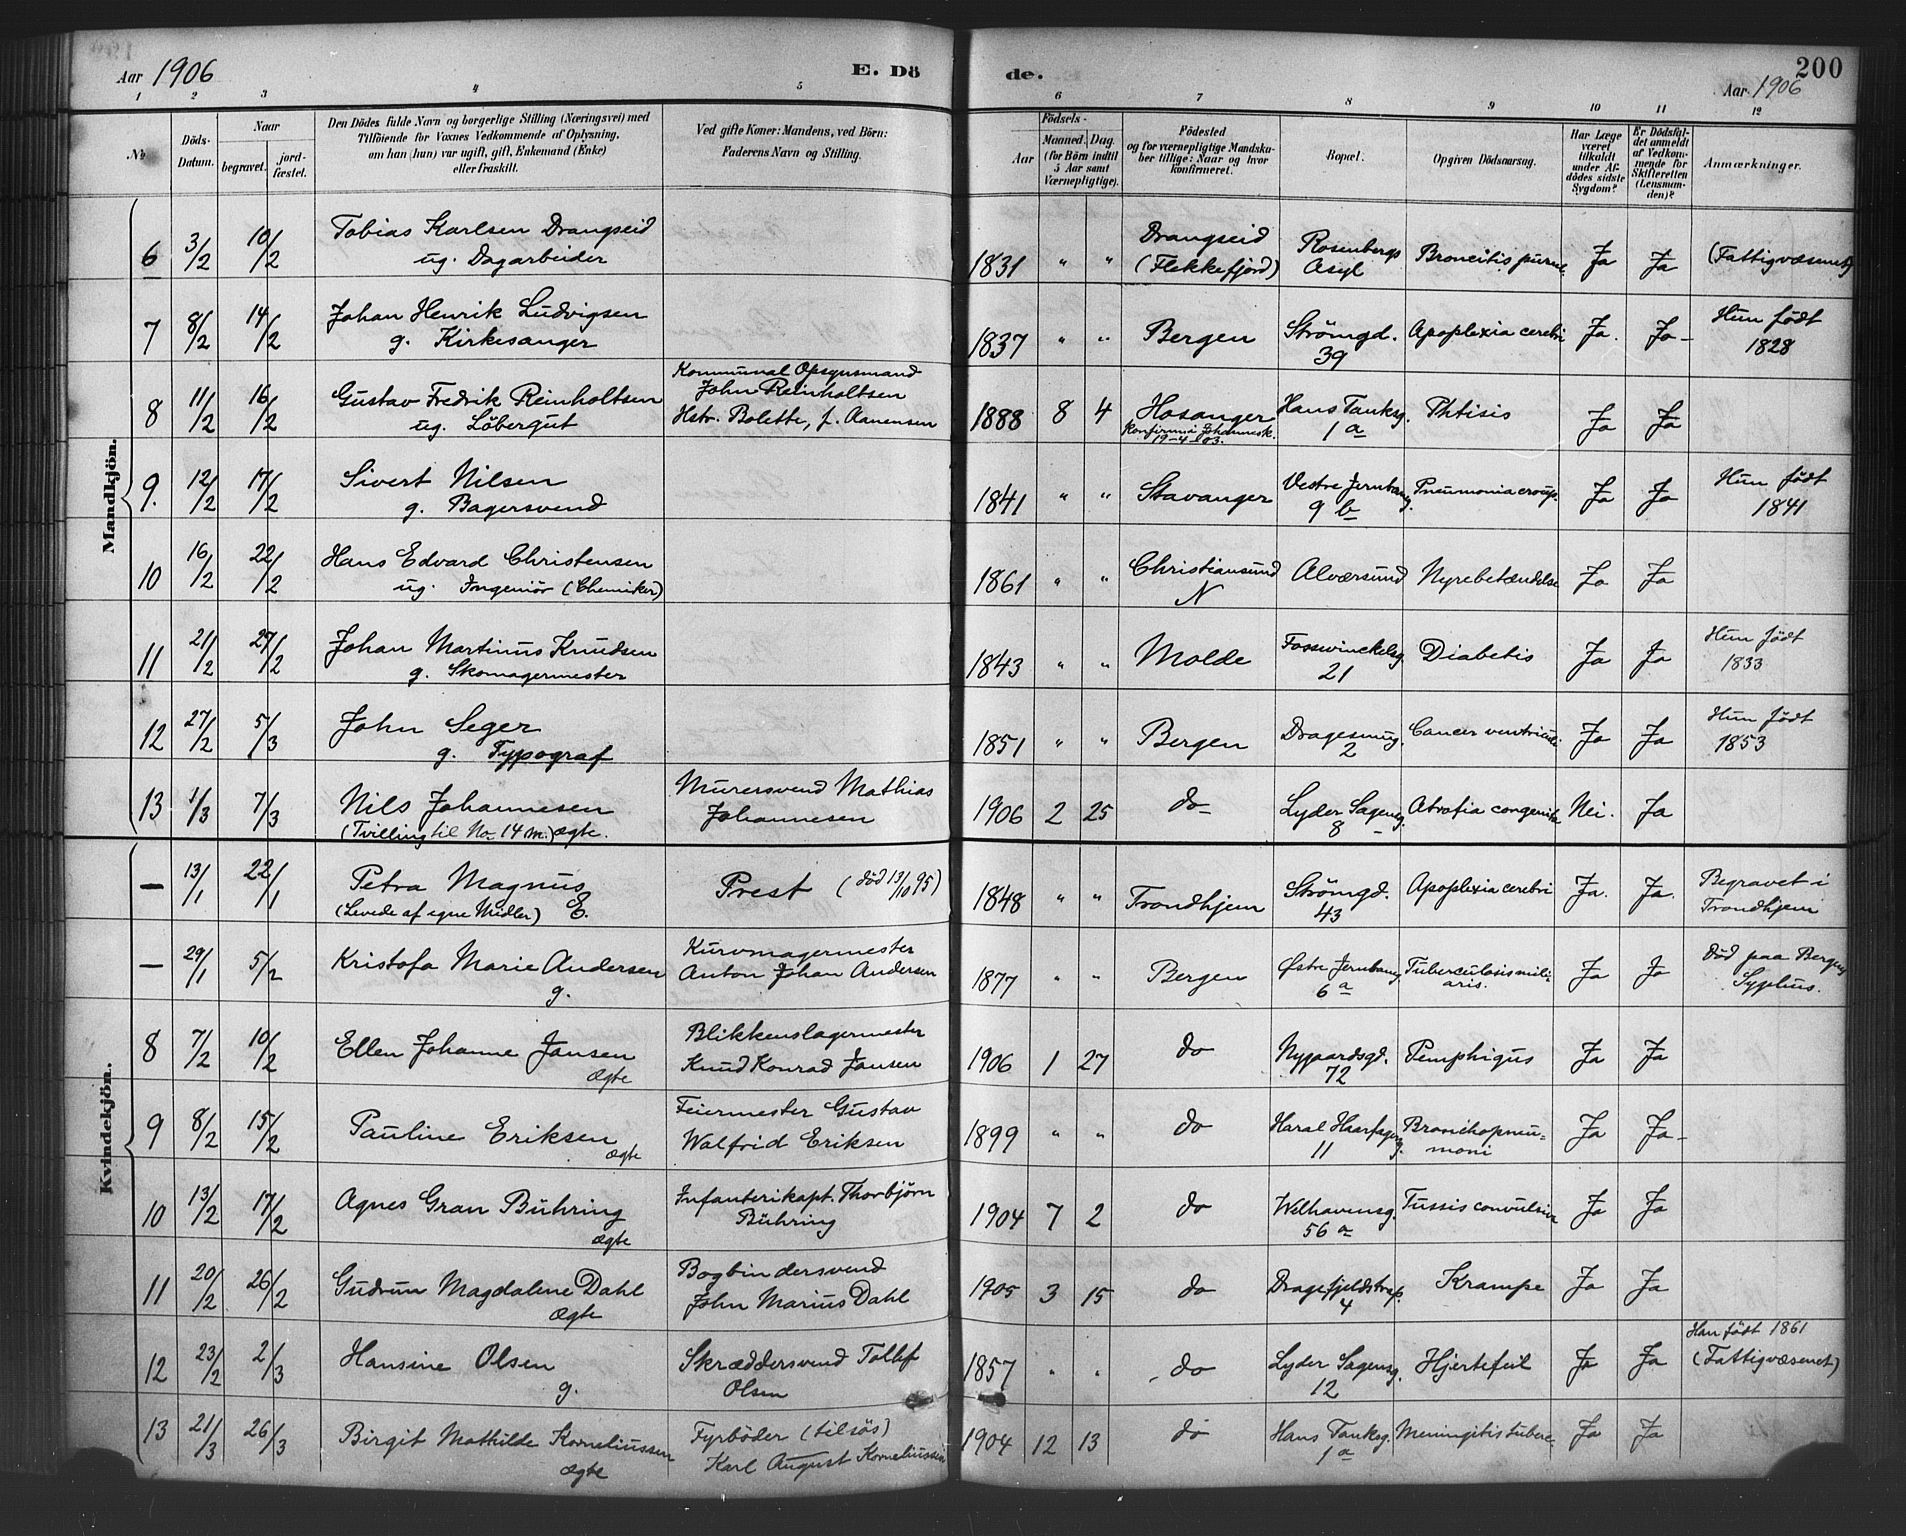 Aar 1906
E. Dö
de.
200
Aar 1906
1 2 3 4 5 6 7 8 9 10 11 12
No
Döds-Datum.
Naar
begravet.
jord-fæstet.
Den Dödes fulde Navn og borgerlige Stilling (Næringsvei) med
Tilföiende for Voxnes Vedkommende af Oplysning,
om han (hun) var ugift, gift, Enkemand (Enke)
eller fraskilt.
Ved gifte Koner: Mandens, ved Börn:
Faderens Navn og Stilling.
Födsels-
Aar
Maaned. Dag.
(for Börn indtil
5 Aar samt
Værnepligtige).
Födested
og for værnepligtige Mandska-
ber tillige: Naar og hvor
konfirmeret.
Bopæl.
Opgiven Dödsaarsag.
Har Læge
været
tilkaldt
under Af-
dödes sidste
Sygdom?
Er Dödsfal-
det anmeldt
af Vedkom-
mende for
Skifteretten
(Lensman-
den)?
Anmærkninger.
Mandkjön.
6 3/2 10/2 Tobias Karlsen Drangseid
ug. Dagarbeider
1831 " " Drangseid
(Flekkefjord)
Rosenbergs
Asyl
Broncitis Ja Ja (Fattigvæsenet)
7 8/2 14/2 Johan Henrik Ludvigsen
g. Kirkesanger
1837 " " Bergen Strömgd.
39
Apoplexia cerebri Ja. Ja - Hun födt
1828
8 11/2 16/2 Gustav Fredrik Reinholtsen
ug. Löbergut
Kommunal Opsynsmand
John Reinholtsen
Hstr. Bolette, f. Aanensen
1888 8 4 Hosanger
Konfirm. i Johannesk.
19-4-03.
Hans Tanksg.
1 a
Phtisis Ja Ja
9. 12/2 17/2 Sivert Nilsen
g. Bagersvend
1841 " " Stavanger Vestre Jernbaneg.
9 b
Pneumonia croup. Ja Ja Hun födt
1841
10 16/2 22/2 Hans Edvard Christensen
ug. Ingeniör (Chemiker)
1861 " " Christiansund
N
Alværsund Nyrebetændelse Ja Ja
11 21/2 27/2 Johan Martinus Knudsen
g. Skomagermester
1843 " " Molde Fosswinckelsg.
21
Diabetis Ja Ja Hun födt
1833
12 27/2 5/3 John Seger
g. Typograf
1851 " " Bergen Dragesmug.
2
Cancer ventriculi Ja Ja Hun födt
1853
13 1/3 7/3 Nils Johannesen
(Tvilling til No 14 m.) ægte.
Murersvend Mathias
Johannesen
1906 2 25 do Lyder Sagensg.
8
Atrofia congenita Nei. Ja
Kvindekjön.
— 13/1 22/1 Petra Magnus
(Levede af egne Midler) E.
Prest (död 13/10 95)
1848 " " Trondhjem Strömgd.
43
Apoplexia cerebri Ja. Ja. Begravet i
Trondhjem
— 29/1 5/2 Kristofa Marie Andersen
g.
Kurvmagermester
Anton Johan Andersen
1877 " " Bergen Østre Jernbaneg.
6 a
Tuberculosis mili-
aris.
Ja Ja Död paa Bergens
Sygehus.
8 7/2 10/2 Ellen Johanne Jansen
ægte
Blikkenslagermester
Knud Konrad Jansen
1906 1 27 do Nygaardsgd.
72
Pemphigus Ja Ja
9 8/2 15/2 Pauline Eriksen
ægte
Feiermester Gustav
Walfrid Eriksen
1899 " " do Haral Haarfagersg.
11
Bronchopneu-
moni
Ja Ja -
10 13/2 17/2 Agnes Gran Bühring
ægte
Infanterikapt. Thorbjörn
Bühring
1904 7 2 do Welhavensg.
56 a
Tussis convulsiva Ja Ja
11 20/2 26/2 Gudrun Magdalene Dahl
ægte
Bogbindersvend
John Marius Dahl
1905 3 15 do Dragefjeldstrap.
4
Krampe Ja Ja
12 23/2 2/3 Hansine Olsen
g.
Skræddersvend Tollef
Olsen
1857 " " do Lyder Sagensg.
12
Hjertefeil Ja Ja Han födt 1861
(Fattigvæsenet)
13 21/3 26/3 Birgit Mathilde Korneliussen
ægte
Fyrböder (tilsös)
Karl August Korneliussen
1904 12 13 do Hans Tanksg.
1 a
Meningitis tuberc. Ja Ja